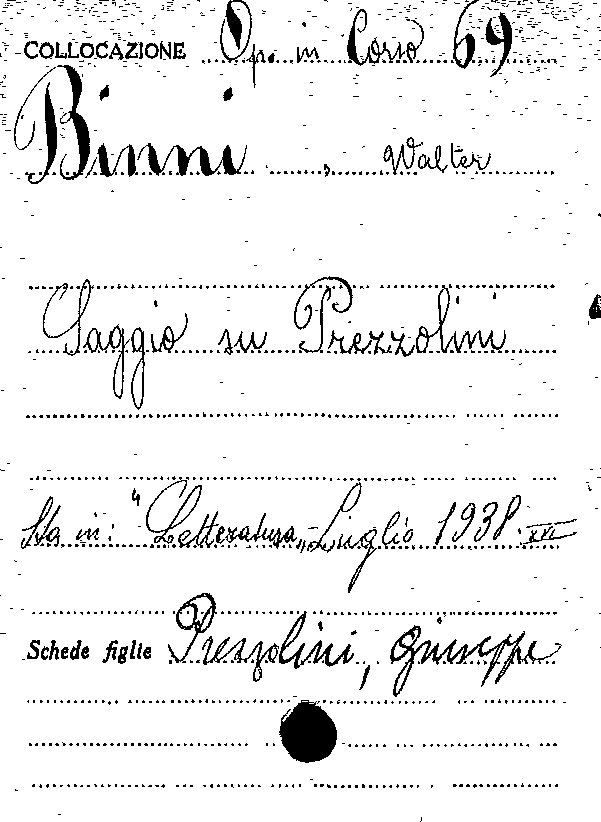 COLLOCAZIONE Op. in Corso 69
Binni, Walter
Saggio su Prezzolini
Sta in: "Letteratura„ Luglio 1938. XVI
Schede figlie Prezzolini, Giuseppe